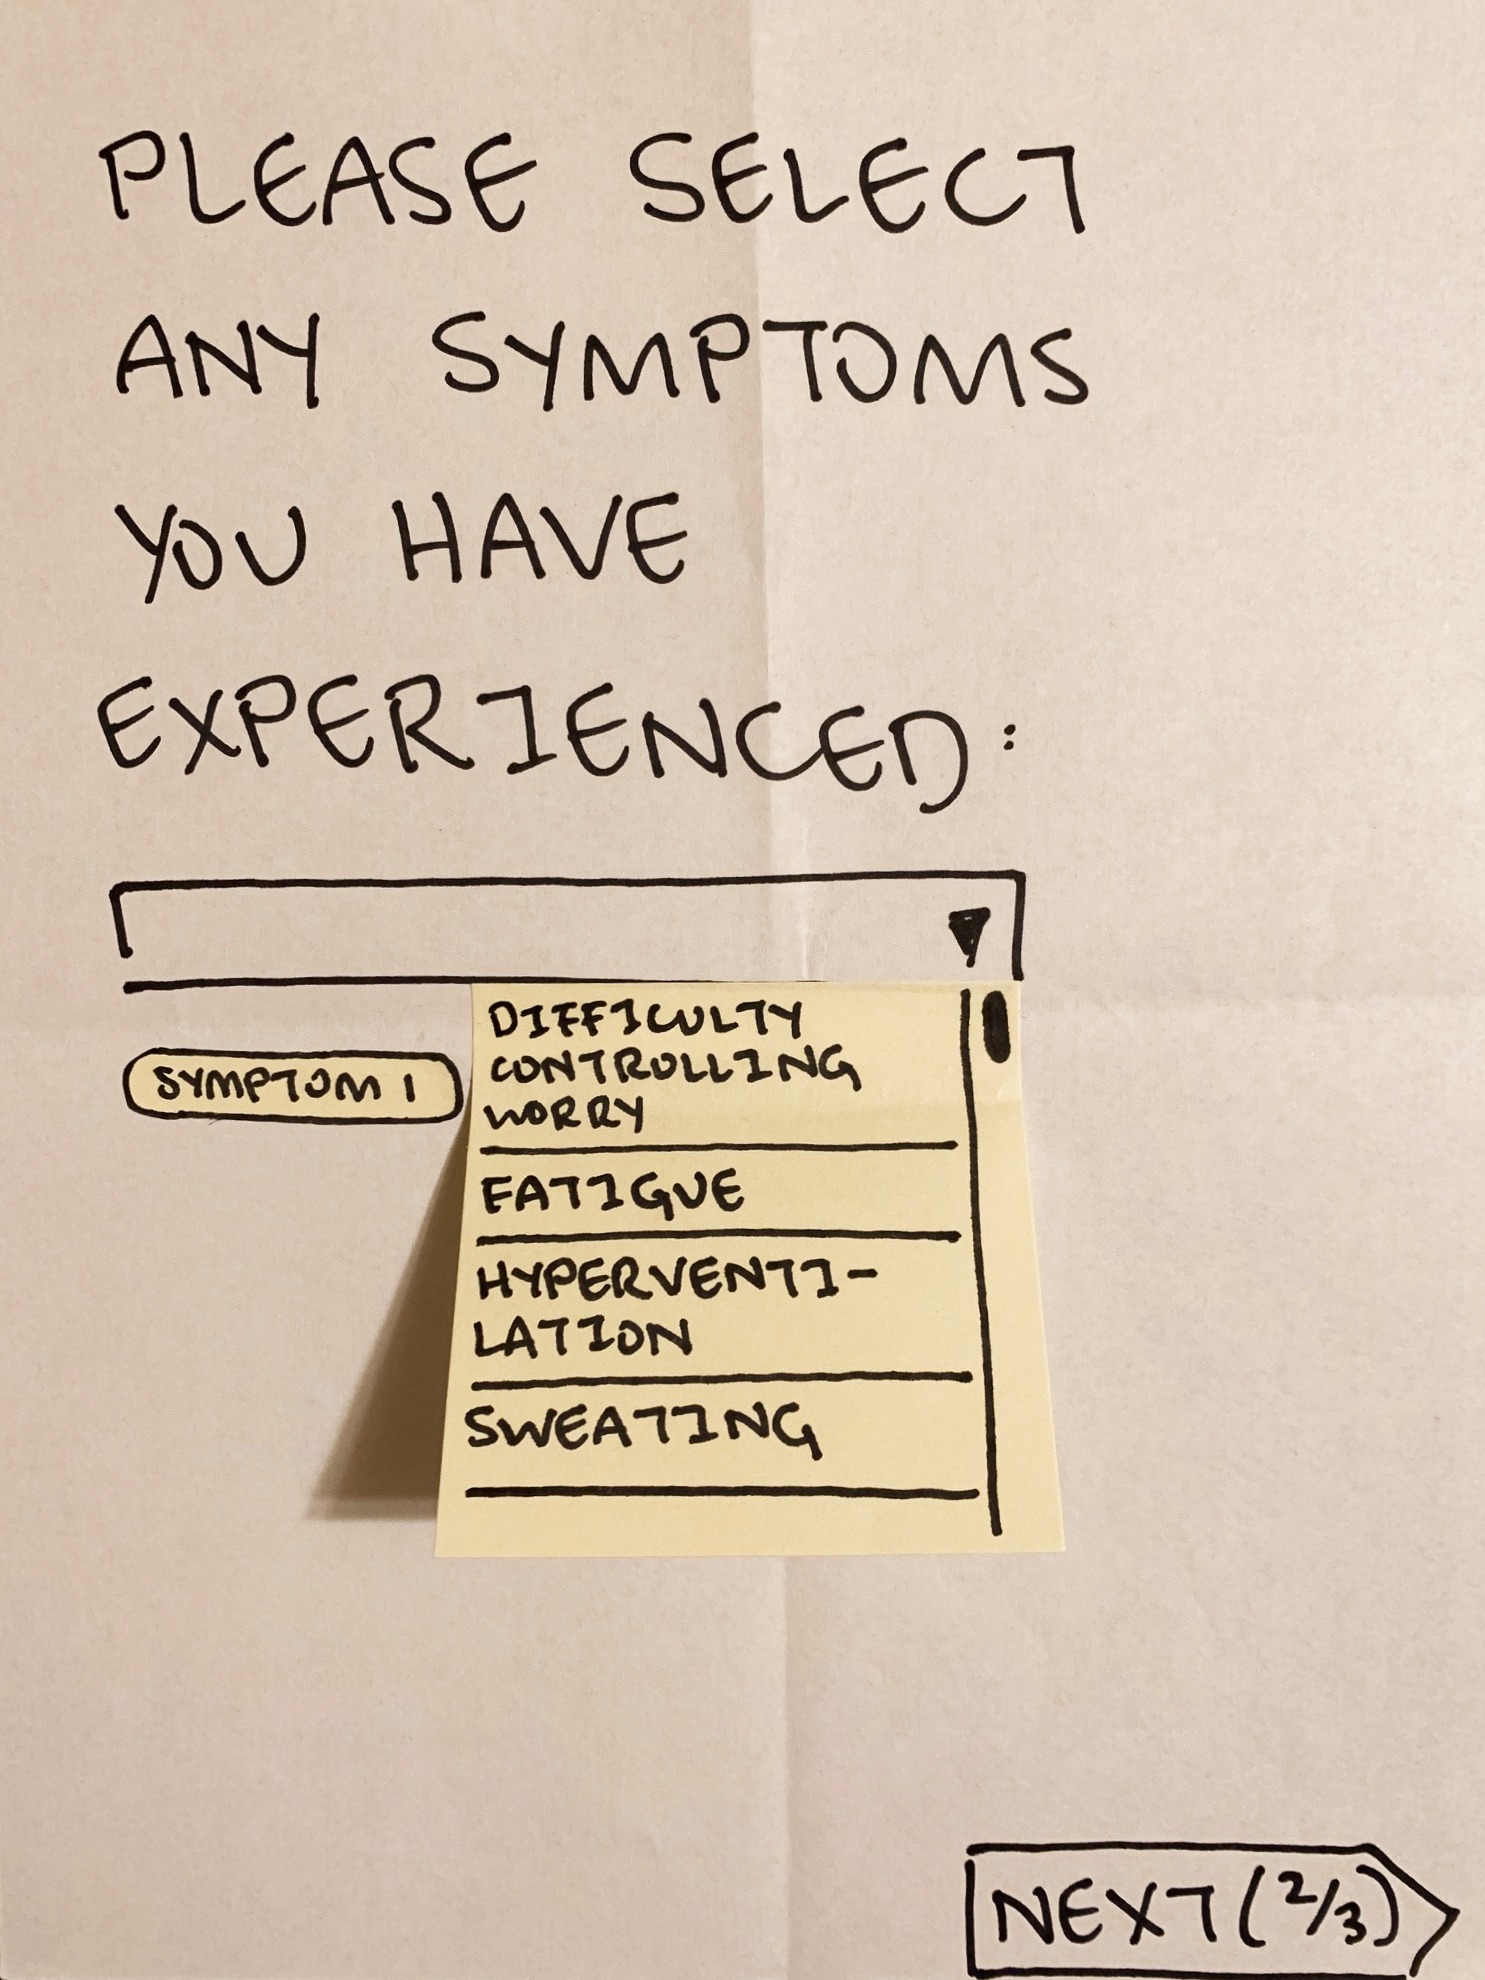 PLEASE SELECT
ANY SYMPTOMS
YOU HAVE
EXPERIENCED:
SYMPTOM 1
DIFFICULTY
CONTROLLING
WORRY
FATIGUE
HYPERVENTI-
LATION
SWEATING
NEXT (2/3)